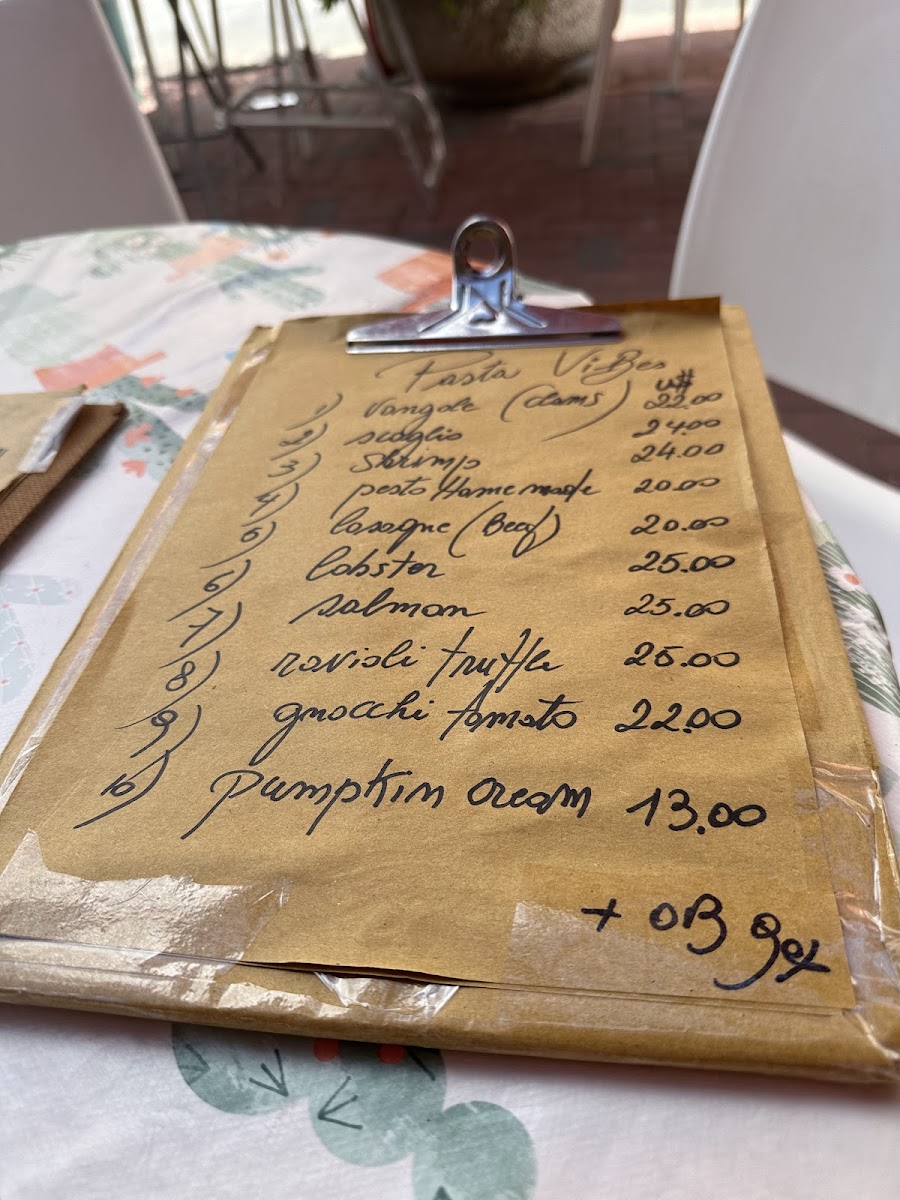 Pasta ViBes
u#
1) Vongole (clams) 22.00
2) scoglio 24.00
3) Shrimp 24.00
4) pesto Home made 20.00
5) lasagne (Beef) 20.00
6) lobster 25.00
7) salmon 25.00
8) ravioli truffle 25.00
9) gnocchi tomato 22.00
10) pumpkin cream 13.00
+ OB